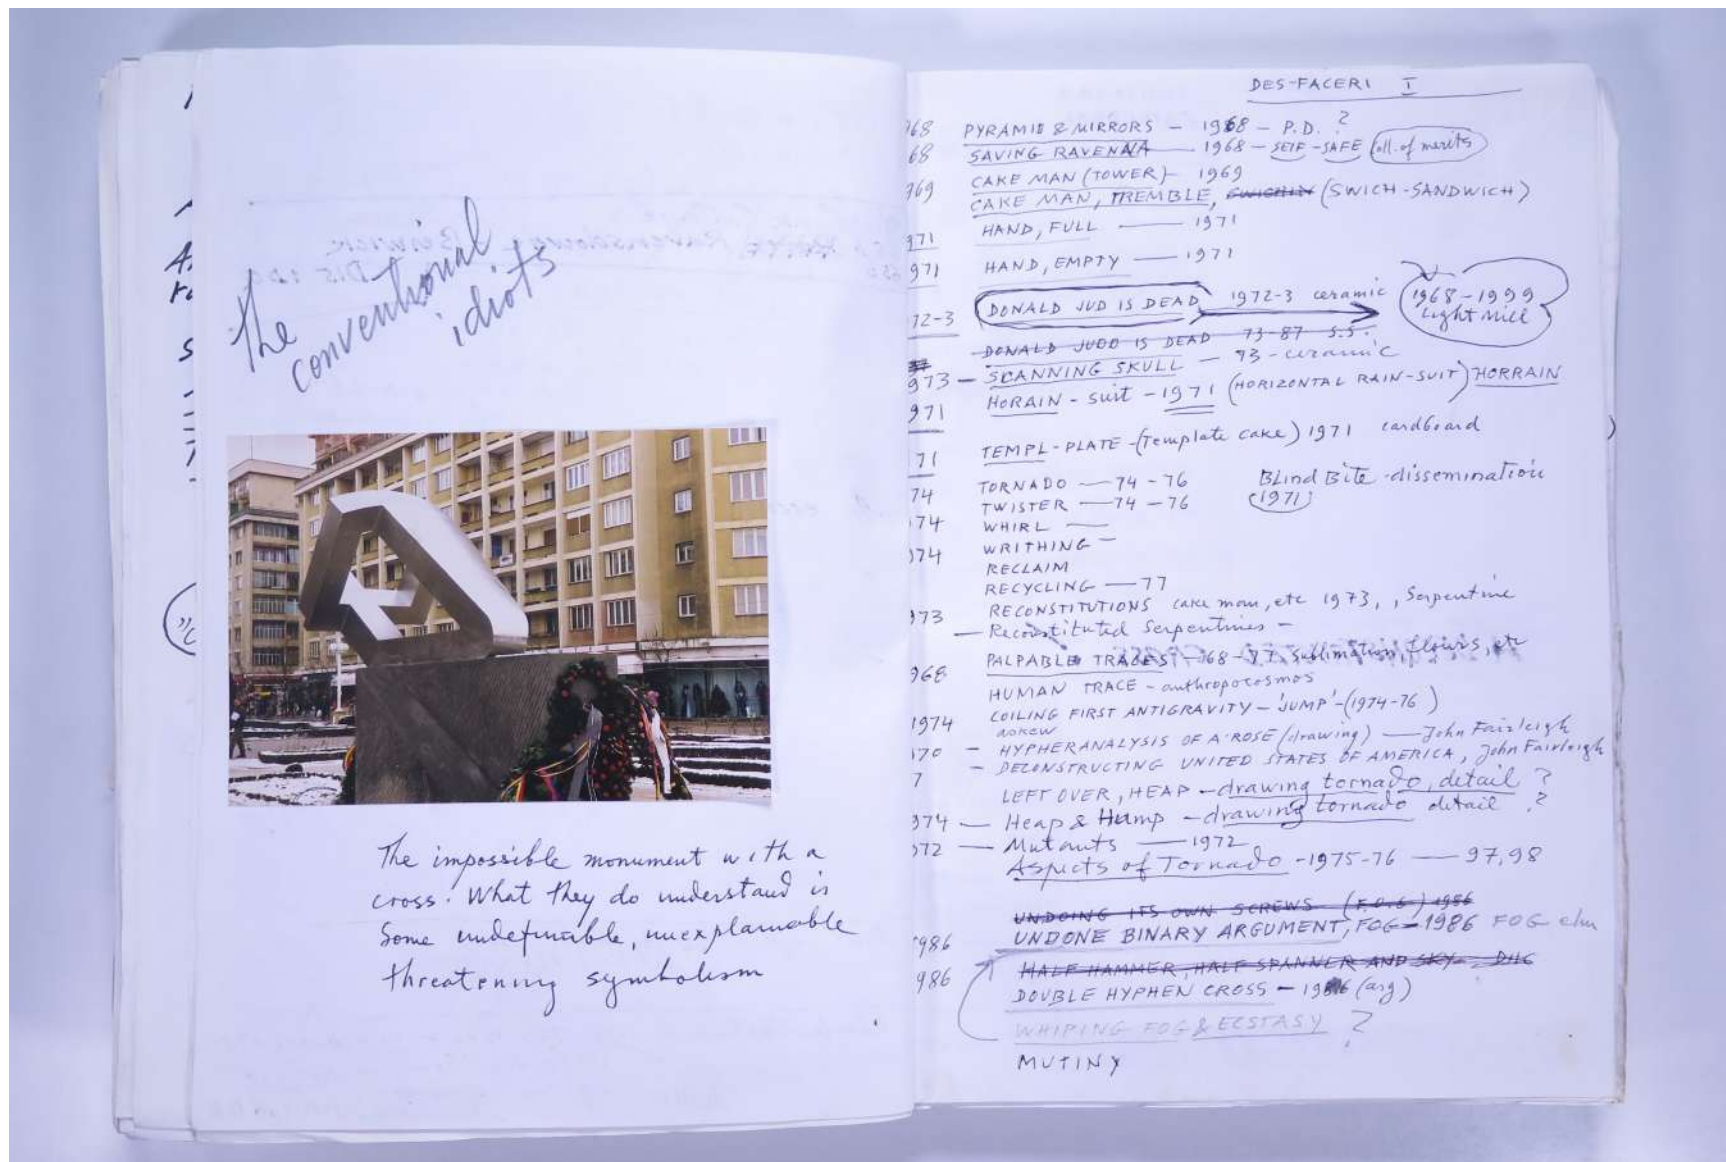 the
conventional
idiots
The impossible monument with a
cross. What they do understand is
some undefinable, unexplainable
threatening symbolism
DES-FACERI I
968 PYRAMID & MIRRORS - 1968 - P.D. ?
68 SAVING RAVENNA - 1968 - SEIF - SAFE (all. of merits)
969 CAKE MAN (TOWER) - 1969
CAKE MAN, TREMBLE, (SWICH-SANDWICH)
971 HAND, FULL — 1971
971 HAND, EMPTY — 1971
72-3 DONALD JUD IS DEAD 1972-3 ceramic 1968-1999
DONALD JUDD IS DEAD 73-87 S.S.
973 - SCANNING SKULL - 93 - ceramic
971 HORAIN - suit - 1971 (HORIZONTAL RAIN-SUIT) HORRAIN
71 TEMPL-PLATE - (Template cake) 1971 cardboard
74 TORNADO — 74-76 Blind Bite - dissemination
TWISTER — 74-76 (1971)
74 WHIRL —
974 WRITHING -
RECLAIM
RECYCLING — 77
973 RECONSTITUTIONS cake man, etc 1973, , Serpentine
— Reconstituted Serpentines -
968 PALPABLE TRACES - 68-77, sublimation, flours, etc
HUMAN TRACE - anthropocosmos
1974 COILING FIRST ANTIGRAVITY - 'JUMP' - (1974-76)
askew
970 - HYPHERANALYSIS OF A ROSE (drawing) — John Fairleigh
7 - DECONSTRUCTING UNITED STATES OF AMERICA, John Fairleigh
LEFT OVER, HEAP - drawing tornado, detail ?
974 — Heap & Hump - drawing tornado detail ?
972 — Mutants — 1972
Aspects of Tornado - 1975-76 — 97, 98
UNDOING ITS OWN SCREWS (F.O.G) 1986
1986 UNDONE BINARY ARGUMENT, FOG - 1986 FOG
986 HALF HAMMER, HALF SPANNER AND SKY
DOUBLE HYPHEN CROSS - 1986 (arg)
WHIPING FOG & ECSTASY ?
MUTINY